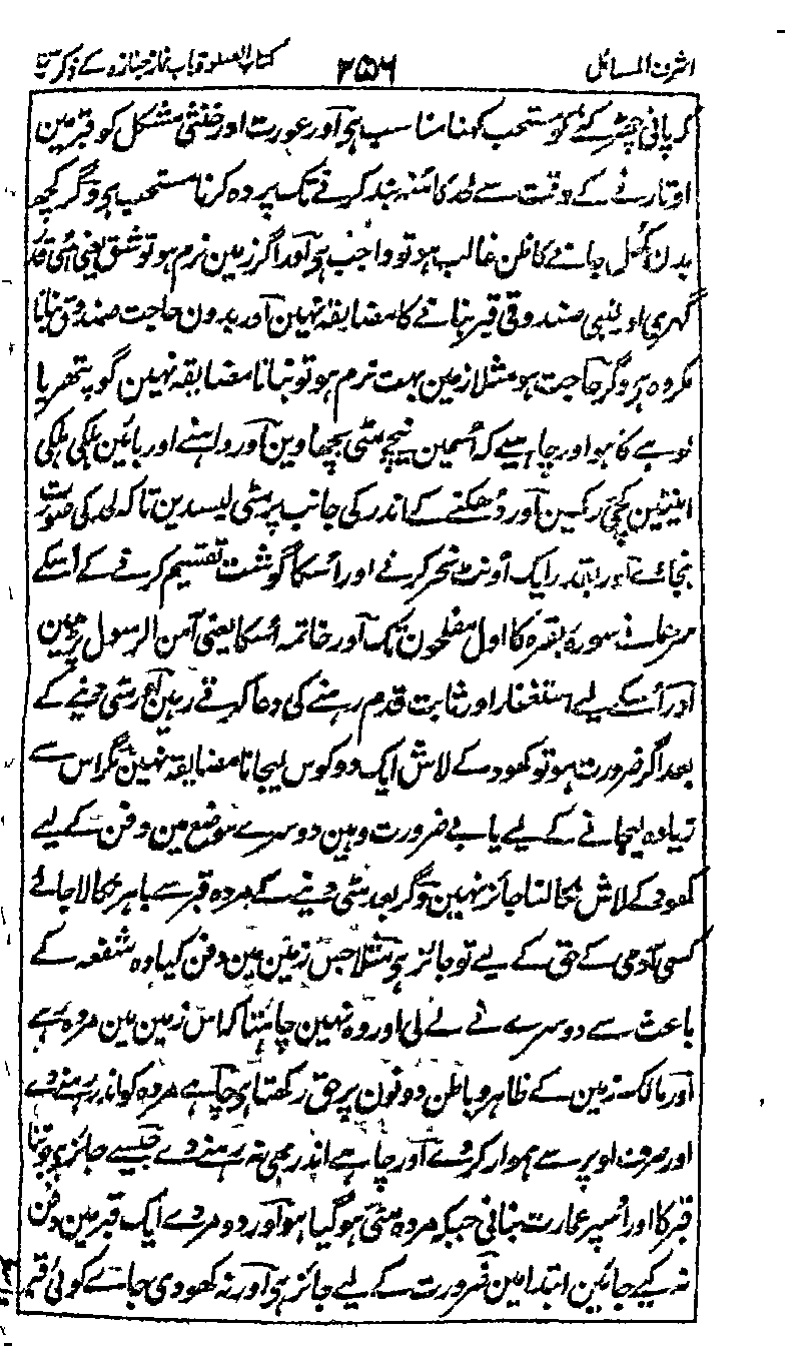 اشرف المسائل ۲۵۶ کتاب الصلوۃ باب نماز جنازہ کے ذکر میں
کر پانی چھڑکنے کو مستحب کہنا مناسب ہی اور عورت اور خنثی مشکل کو قبر مین
اوتارنے کے وقت سے لحد کا منہ بند کرنے تک پردہ کرنا مستحب ہی وگر کچھ
بدن کھل جانے کا ظن غالب ہو تو واجب ہی اور اگر زمین نرم ہو تو شق یعنی
گہری اور لنبی صندوقی قبر بنانے کا مضایقہ نہین اور بدون حاجت صندوق بنانا
مکروہ ہی وگر حاجت ہو مثلا زمین بہت نرم ہو تو بنانا مضایقہ نہین گو پتھر یا
لوہے کا ہو اور چاہیے کہ اُسمین نیچے مٹی بچھاوین اور داہنے اور بائین ہلکی ہلکی
اینٹین کچی رکھین اور ڈھکنے کے اندر کی جانب پر مٹی لیسدین تاکہ لحد کی صورت
بنجائے اور بقدر ایک اونٹ نحر کرنے اور اسکا گوشت تقسیم کرنے کے اُسکے
سورہ بقرہ کا اول مفلحون تک اور خاتمہ اُسکا یعنی آمن الرسول پڑھین
اور اُسکے لیے استغفار اور ثابت قدم رہنے کی دعا کرتے رہین اور مٹی دینے کے
بعد اگر ضرورت ہو تو کھود کے لاش ایک دو کوس لیجانا مضایقہ نہین مگر اس سے
زیادہ لیجانے کے لیے یا بے ضرورت وہین دوسرے موضع مین دفن کے لیے
کھود کے لاش نکالنا جائز نہین وگر بعد مٹی دینے کے مردہ قبر سے باہر نکالا جائے
کسی آدمی کے حق کے لیے تو جائز ہی مثلا جس زمین مین دفن کیا وہ شفعہ کے
باعث سے دوسرے نے لے لی اور وہ نہین چاہتا کہ اس زمین مین مردہ رہے
اور مالک زمین کے ظاہر و باطن دونون پر حق رکھتا ہی چاہے مردہ کو اندر رہنے دے
اور صرف اوپر سے ہموار کردے اور چاہے اندر بھی نہ رہنے دے جیسے جائز ہی
قبر کا اور اُسپر عمارت بنانی جبکہ مردہ مٹی ہوگیا ہو اور دو مردے ایک قبر مین دفن
نہ کیے جائین ابتدا مین ضرورت کے لیے جائز ہی اور نہ کھودی جاے کوئی قبر